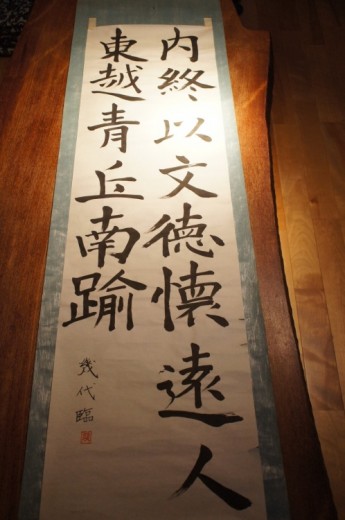 内終以文德懐遠人
東越青丘南踰
幾代臨